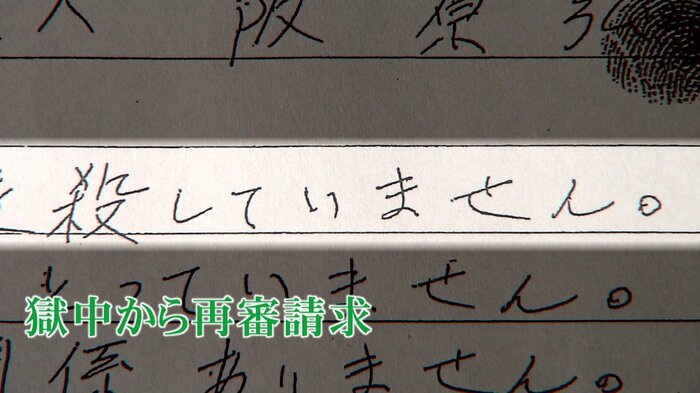 阪 原
殺していません。
っていません。
獄中から再審請求
係ありません。